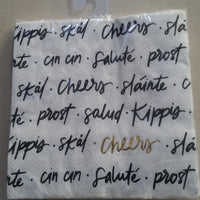 Kippis · skål · Cheers · slái
inte · cin cin · saluté · prost
· skål · Cheers · sláinte · ci
· prost · salud · Kippis ·
Kippis · skål · Cheers · slá
inte · cin cin · saluté · prost